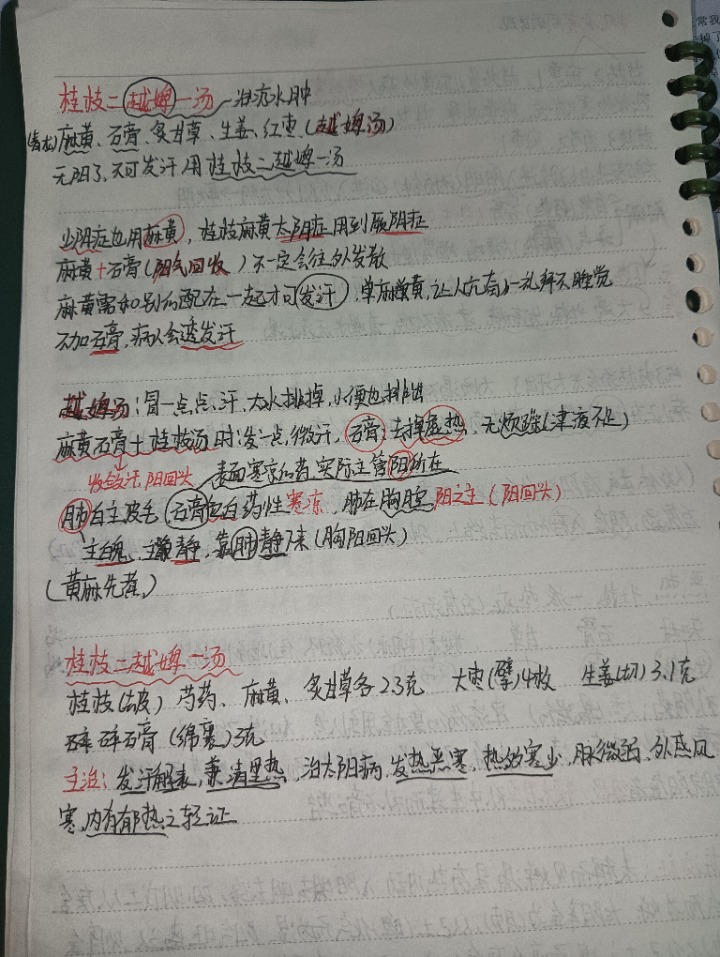 桂枝二越婢一汤 治疗水肿
麻黄、石膏、炙甘草、生姜、红枣(越婢汤)
无阳了、不可发汗用桂枝二越婢一汤
少阴症也用麻黄，桂枝麻黄太阳症用到厥阴症
麻黄+石膏(阳气回收)不一定会往外发散
麻黄需和别的配在一起才可发汗，单麻黄，让人亢奋一礼拜不睡觉
不加石膏，病人会透发汗
越婢汤:冒一点点汗、大水排掉，小便也排出
麻黄石膏+桂枝汤时:发一点微汗，石膏:去掉, 无烦躁(津液不足)
收敛汗，阳回头 表面寒凉的药，实际主管阳所在
肺白主皮毛 石膏色白药性寒冻 肺在胸腔阳之主(阳回头)
主白魄、主静、靠肺静下来(胸阳回头)
(黄麻先煮)
桂枝二越婢一汤
桂枝(去皮) 芍药、麻黄、炙甘草各2.3克 大枣(擘)4枚 生姜(切)3.1克
碎石膏(绵裹)3克
主治:发汗解表，兼清里热，治太阳病，发热恶寒，热多寒少，脉微弱、外感风
寒，内有郁热之轻证